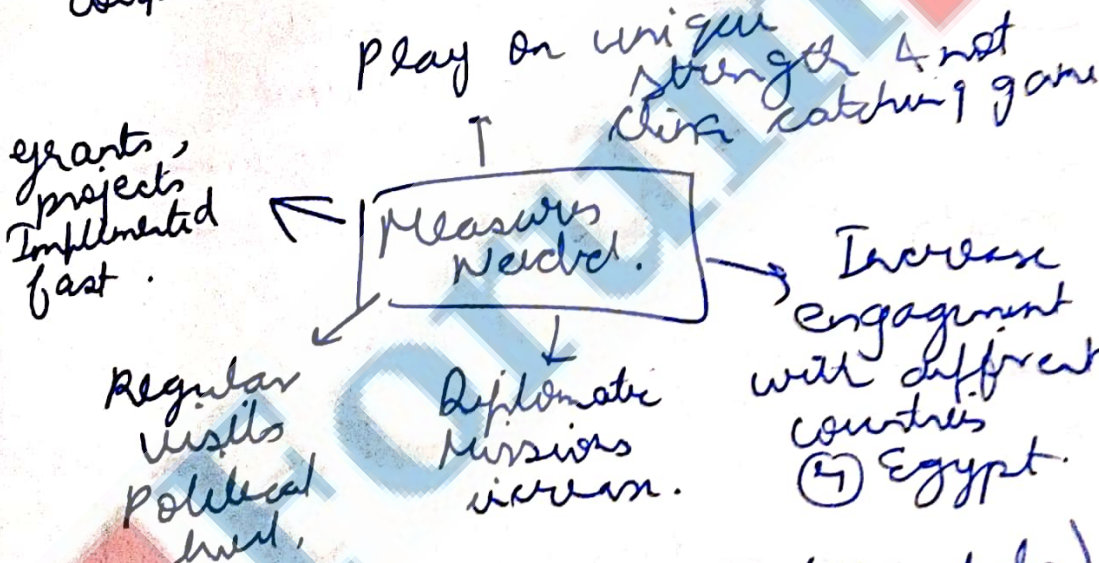 Play on unique
strength & not
China catching game
grants,
projects
Implemented
fast.
Measures
Needed.
Increase
engagement
with different
countries
eg Egypt.
Regular
visits
Political
level.
Diplomatic
Missions
increase.
Forum